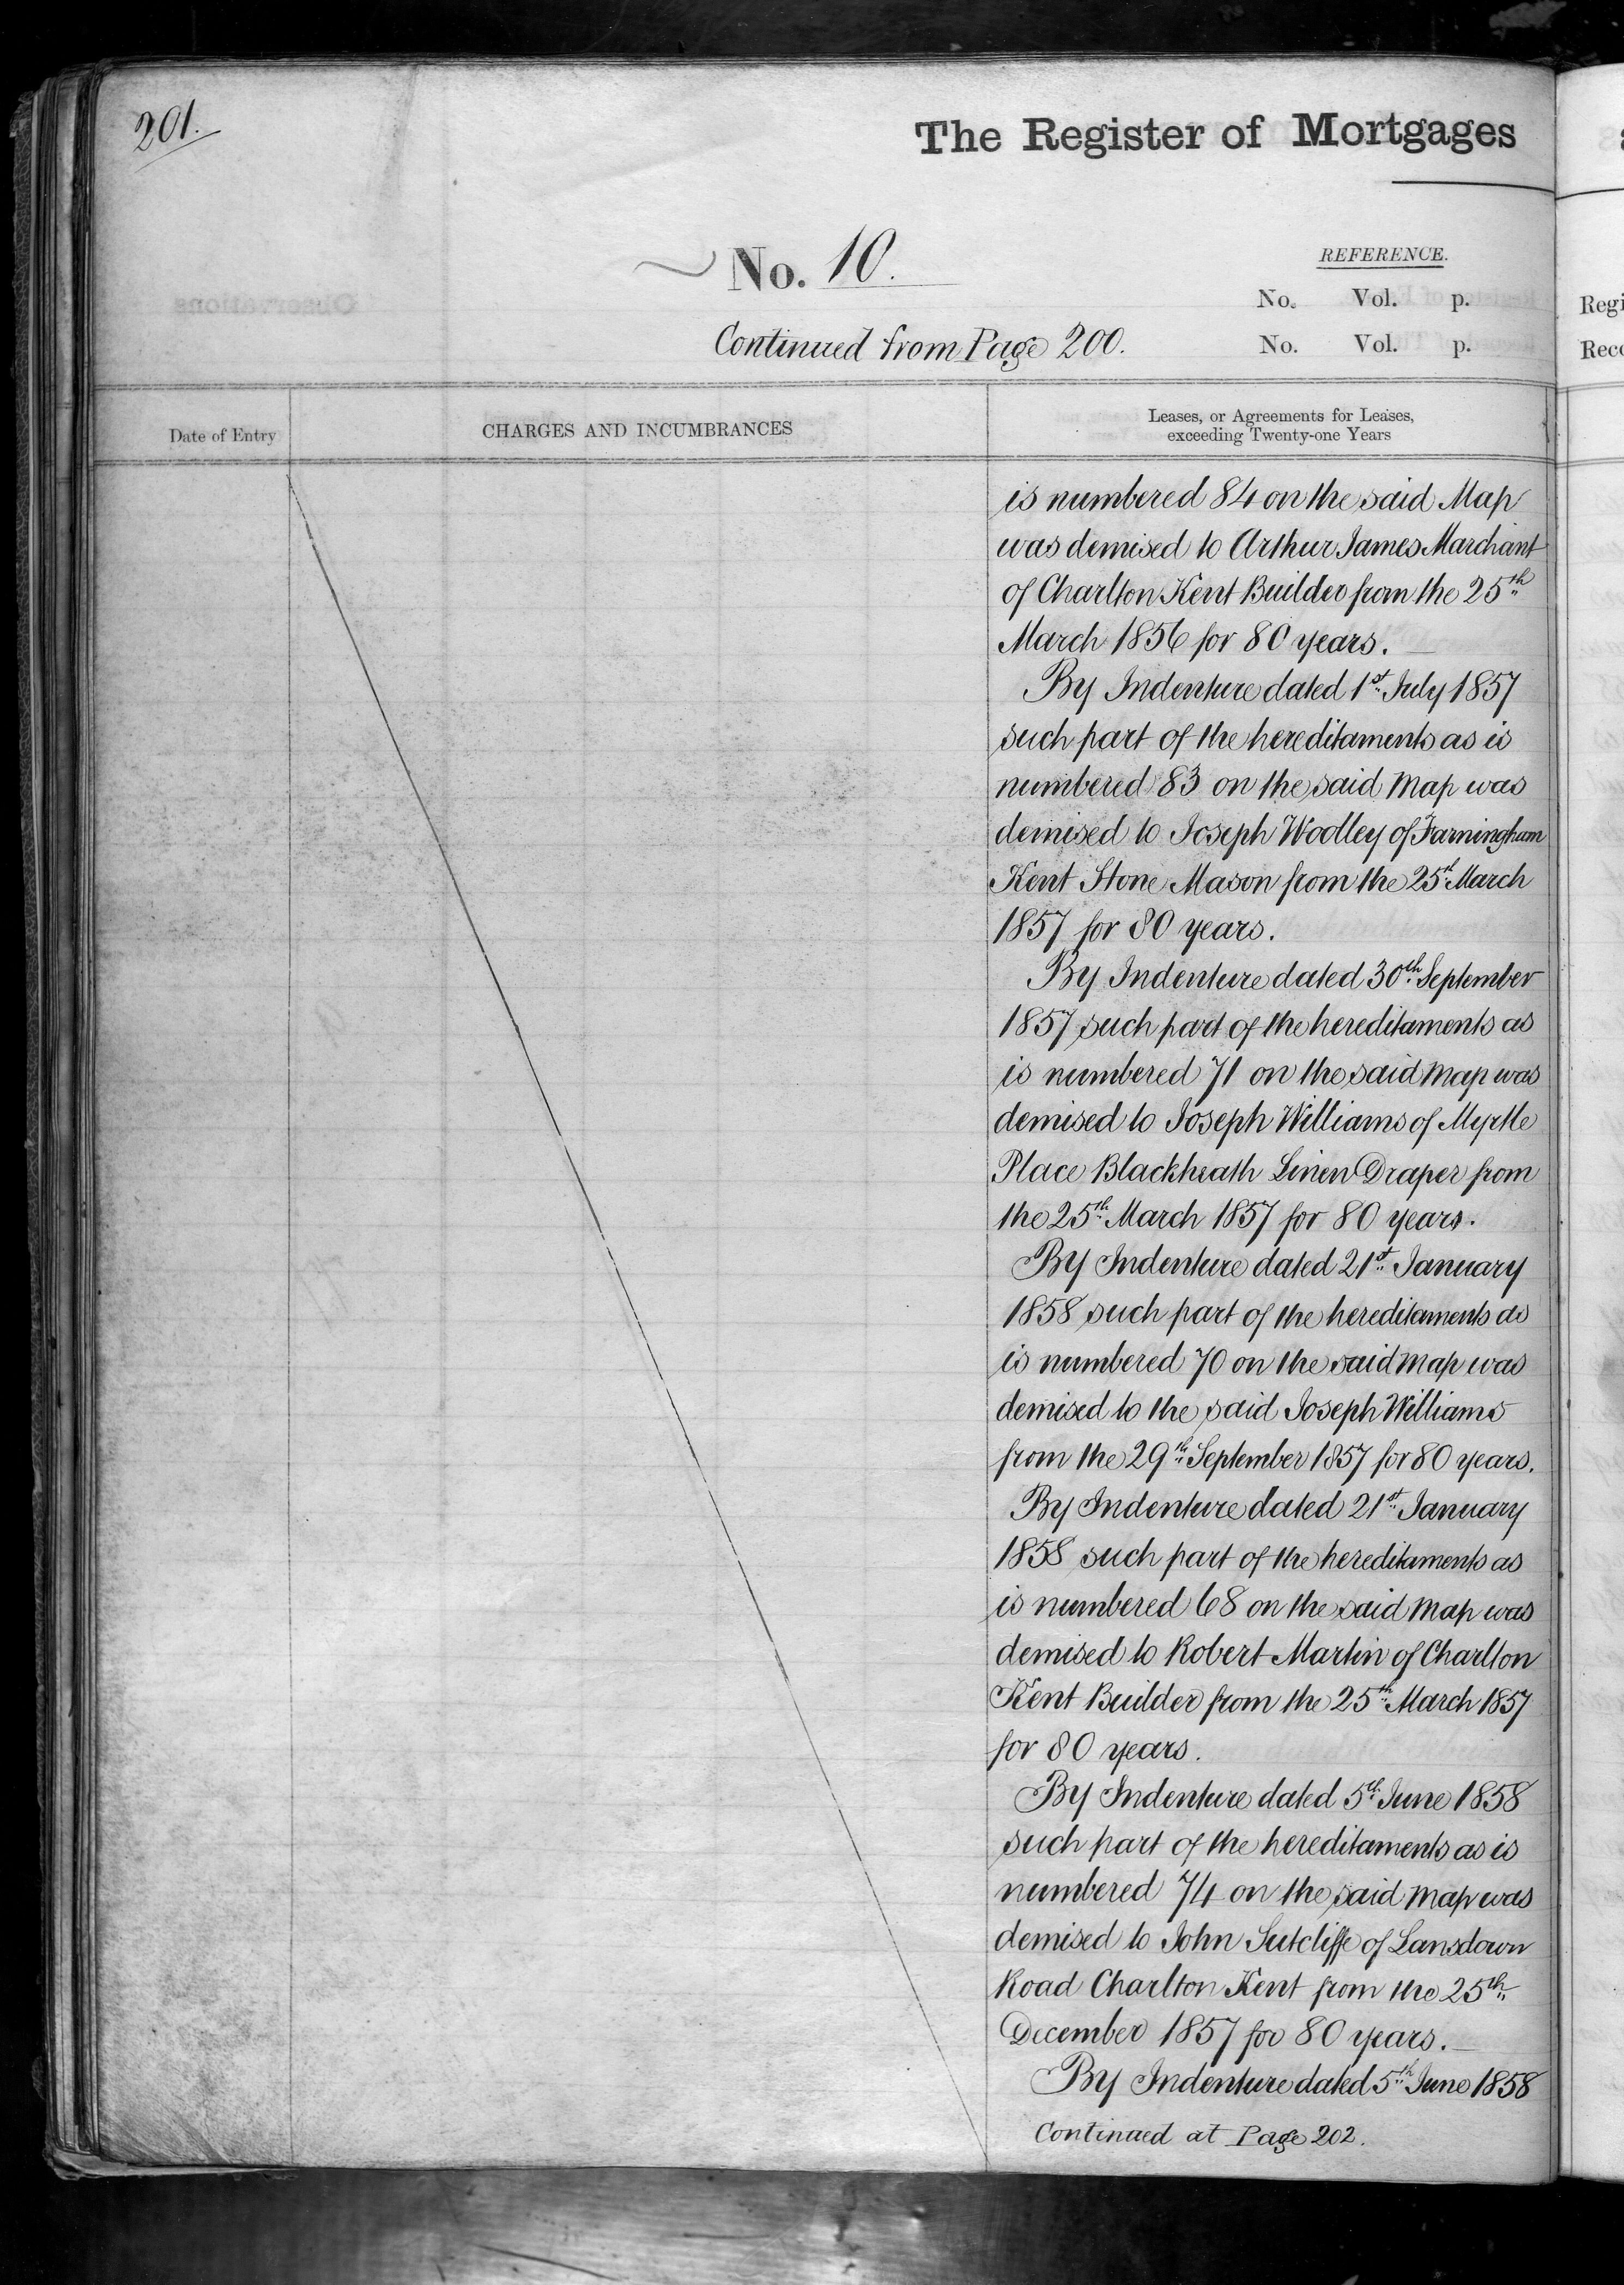 201.
The Register of Mortgages
No. 10.
REFERENCE.
No. Vol. p.
Continued from Page 200.
No. Vol. p.
Regi
Reco
Date of Entry
CHARGES AND INCUMBRANCES
Leases, or Agreements for Leases,
exceeding Twenty-one Years
is numbered 84 on the said Map
was demised to Arthur James Marchant
of Charlton Kent Builder from the 25th
March 1856 for 80 years.
By Indenture dated 1st July 1857
such part of the hereditaments as is
numbered 83 on the said Map was
demised to Joseph Woolley of Farningham
Kent Stone Mason from the 25th March
1857 for 80 years.
By Indenture dated 30th September
1857 such part of the hereditaments as
is numbered 71 on the said Map was
demised to Joseph Williams of Myrtle
Place Blackheath Linen Draper from
the 25th March 1857 for 80 years.
By Indenture dated 21st January
1858 such part of the hereditaments as
is numbered 70 on the said Map was
demised to the said Joseph Williams
from the 29th September 1857 for 80 years.
By Indenture dated 21st January
1858 such part of the hereditaments as
is numbered 68 on the said Map was
demised to Robert Martin of Charlton
Kent Builder from the 25th March 1857
for 80 years.
By Indenture dated 5th June 1858
such part of the hereditaments as is
numbered 74 on the said Map was
demised to John Sutcliffe of Lansdown
Road Charlton Kent from the 25th
December 1857 for 80 years.
By Indenture dated 5th June 1858
Continued at Page 202.